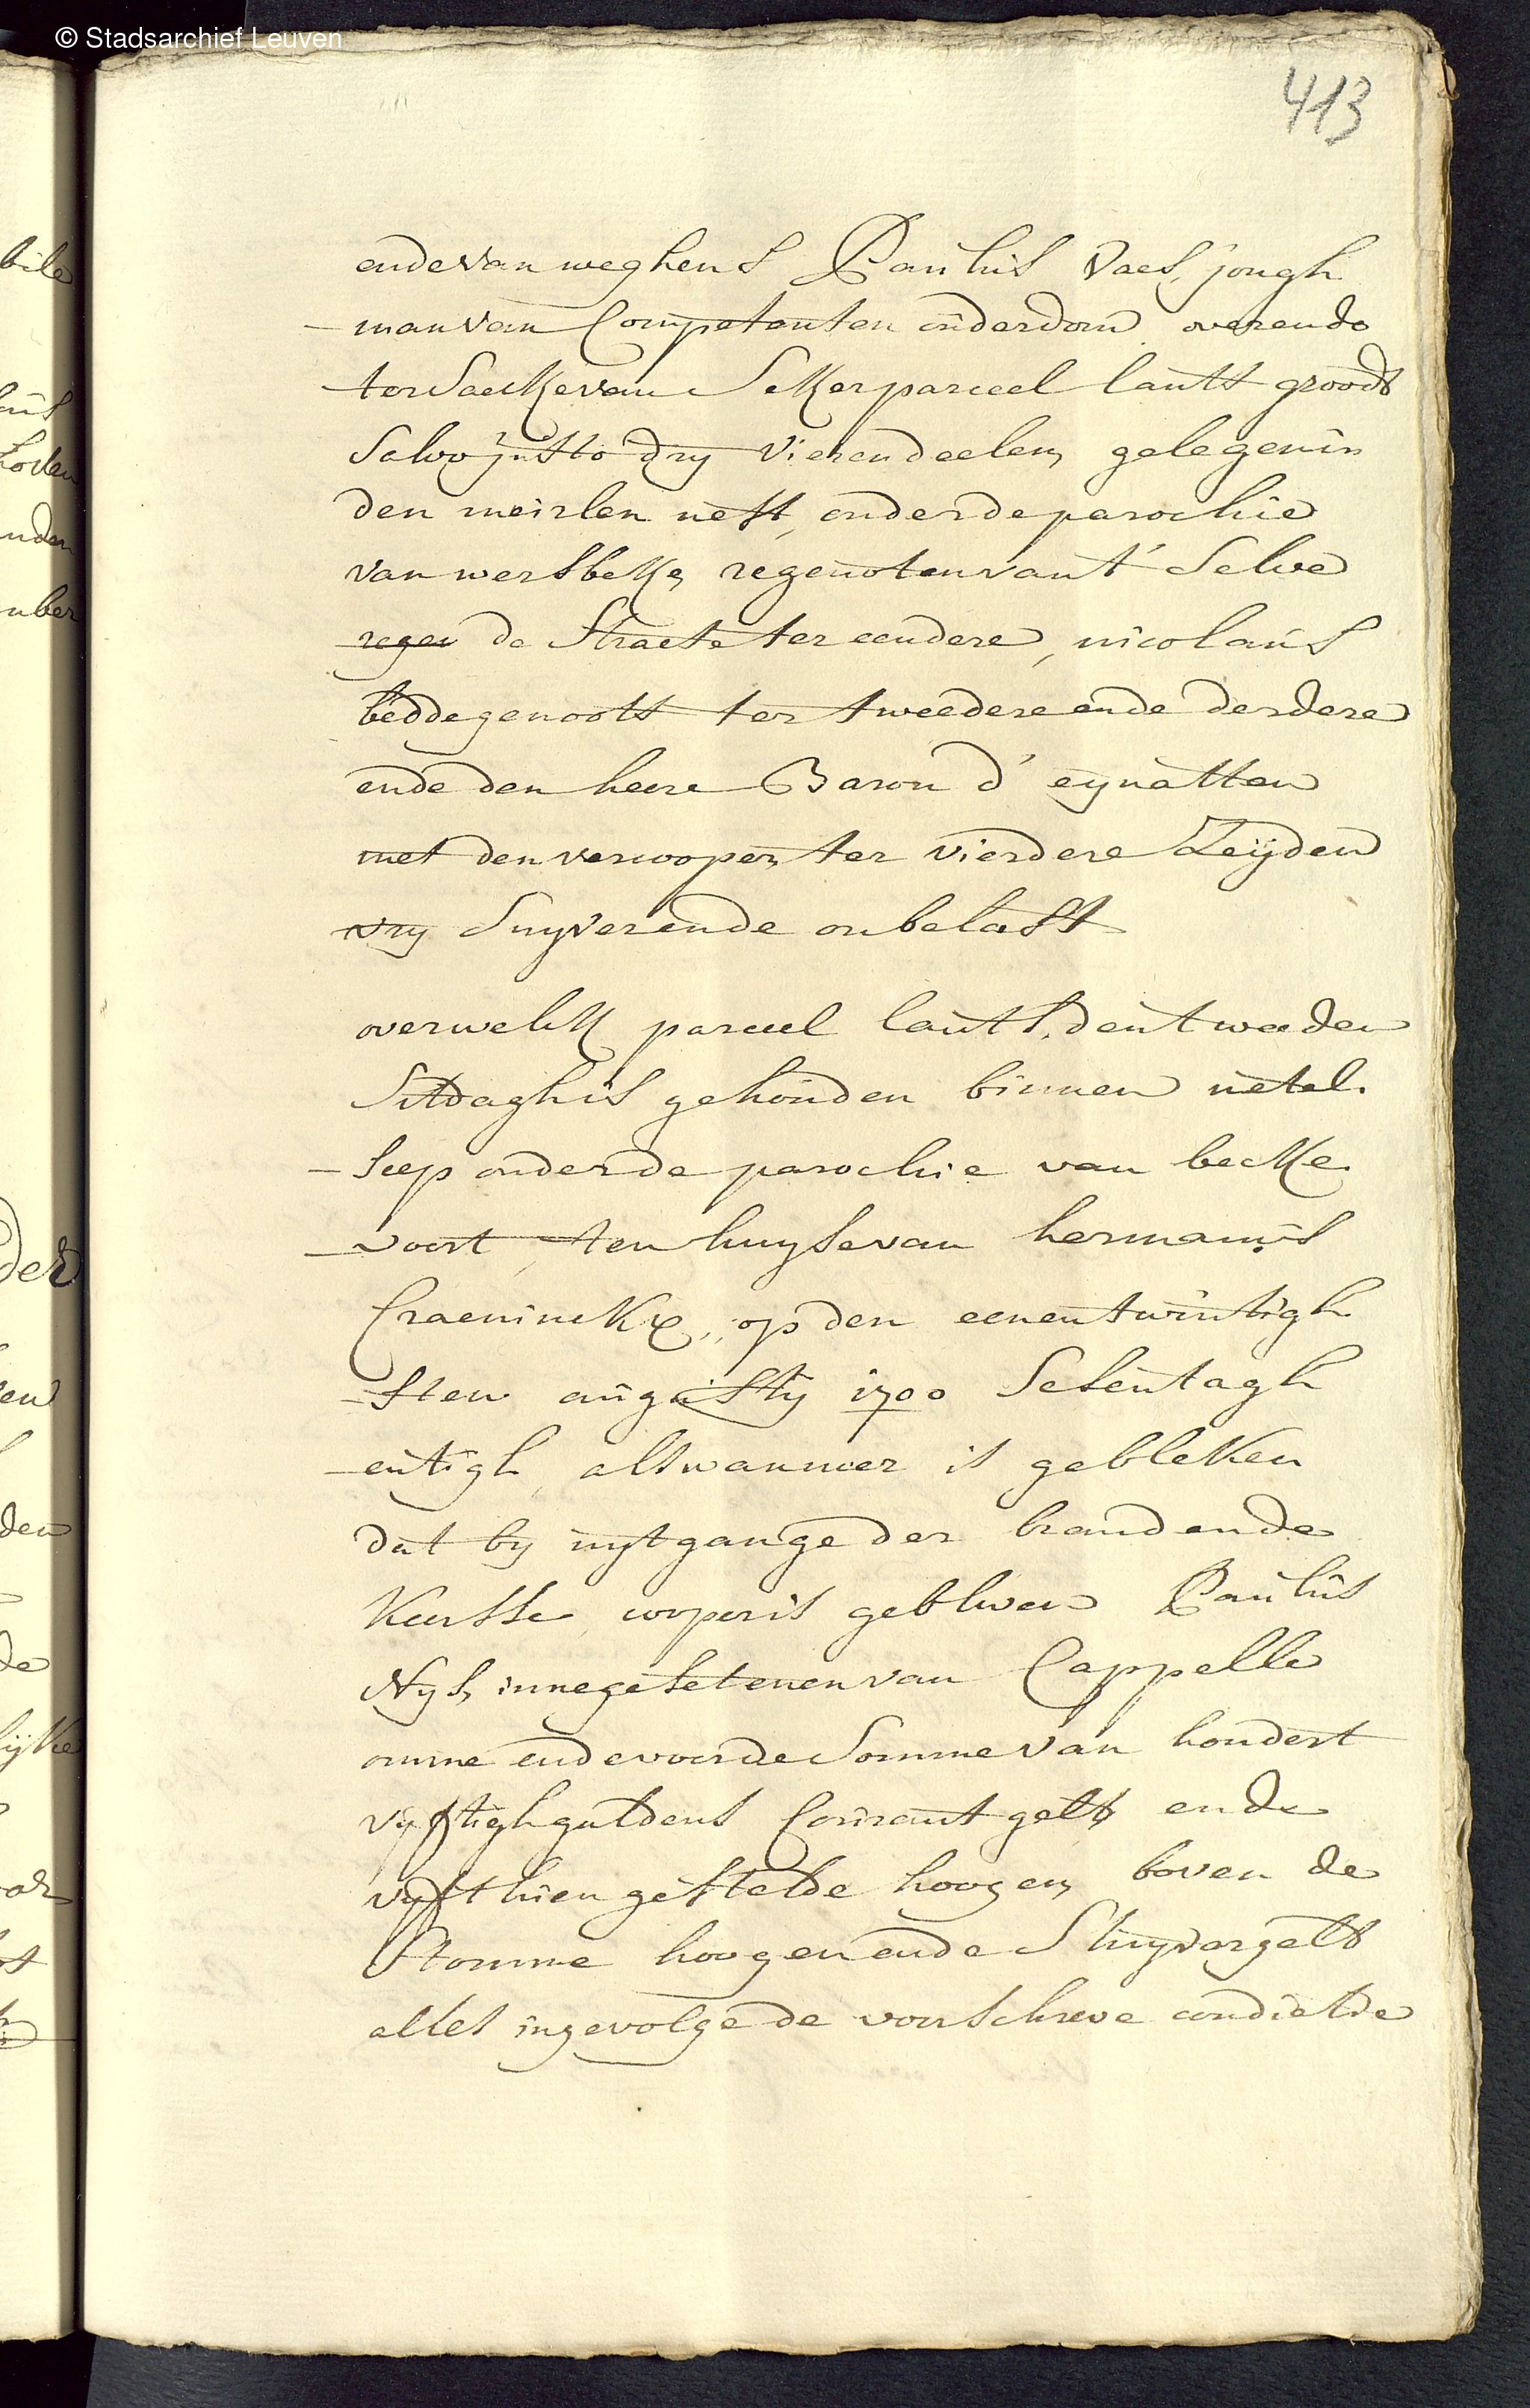 © Stadsarchief Leuven
413
ende van weghens Paulus Vaes, jongh
-man van Competenten ouderdom over ende
ter saecke van seker parceel lants groodt
salvo justo dry vierendeelen gelegen in
den meirlen nest, onder de parochie
van wersbeke regenoten van't selve
regen de straete ter eendere, nicolaus
beddegenoots ter tweedere ende derdere
ende den heere Baron d'eynatten
met den vercooper ter vierdere Zeijden
vry suyver ende onbelast
over welck parceel lants, den tweeden
sitdagh is gehouden binnen netel.
-seep onder de parochie van becke.
-voort, ten huyse van hermanus
Craeninckx, op den eenentwintigh
-sten augusty 1700 sesentagh
-entigh, alswanneer is gebleken
dat by uytgange der brandende
keersse, cooper is gebleven Paulus
Nys, innegesetenen van Cappelle
omme ende voor de somme van hondert
vyftigh guldens Courant gelt, ende
vyfthien gestelde hoogen, boven de
stomme hoogen ende stuyvergelt
alles ingevolge de voorschreve conditie